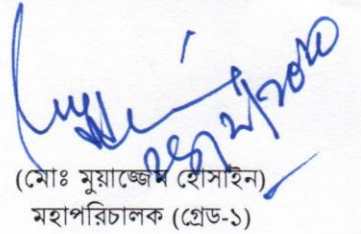 (মোঃ মুয়াজ্জেম হোসাইন)
মহাপরিচালক (গ্রেড-১)